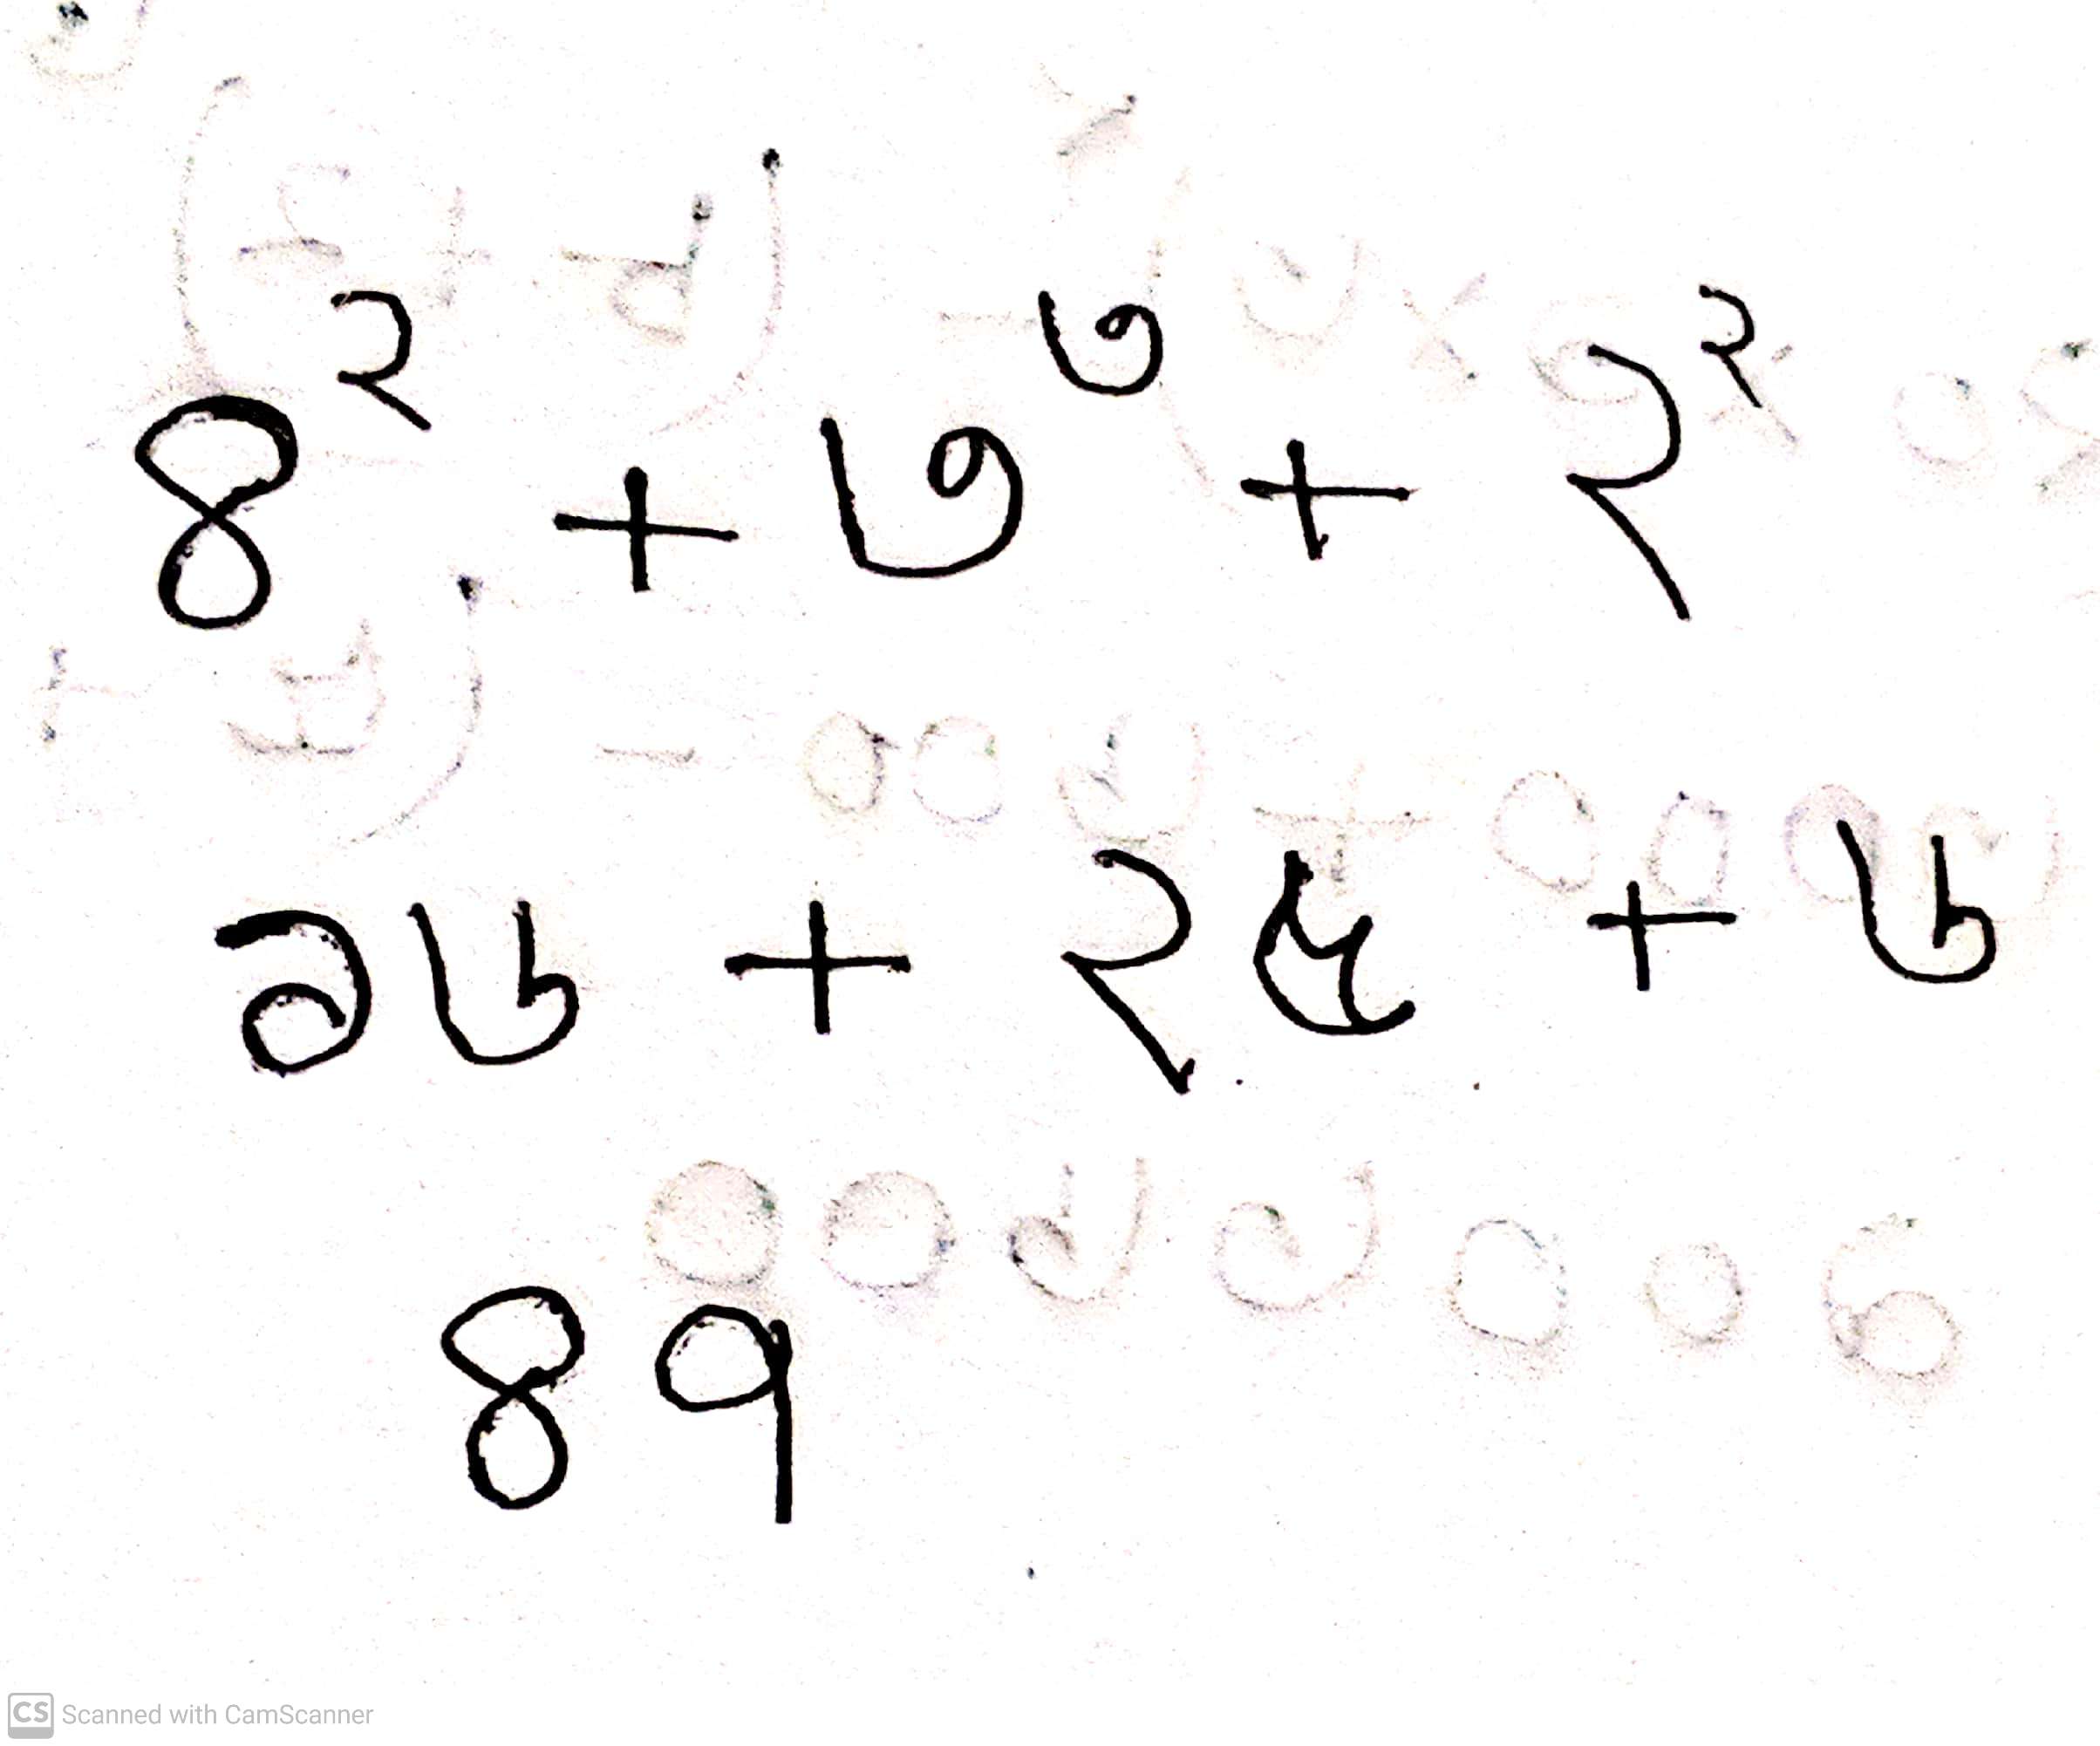 ৪^২ + ৩^৩ + ২^২
১৬ + ২৫ + ৬
৪৭
CS Scanned with CamScanner